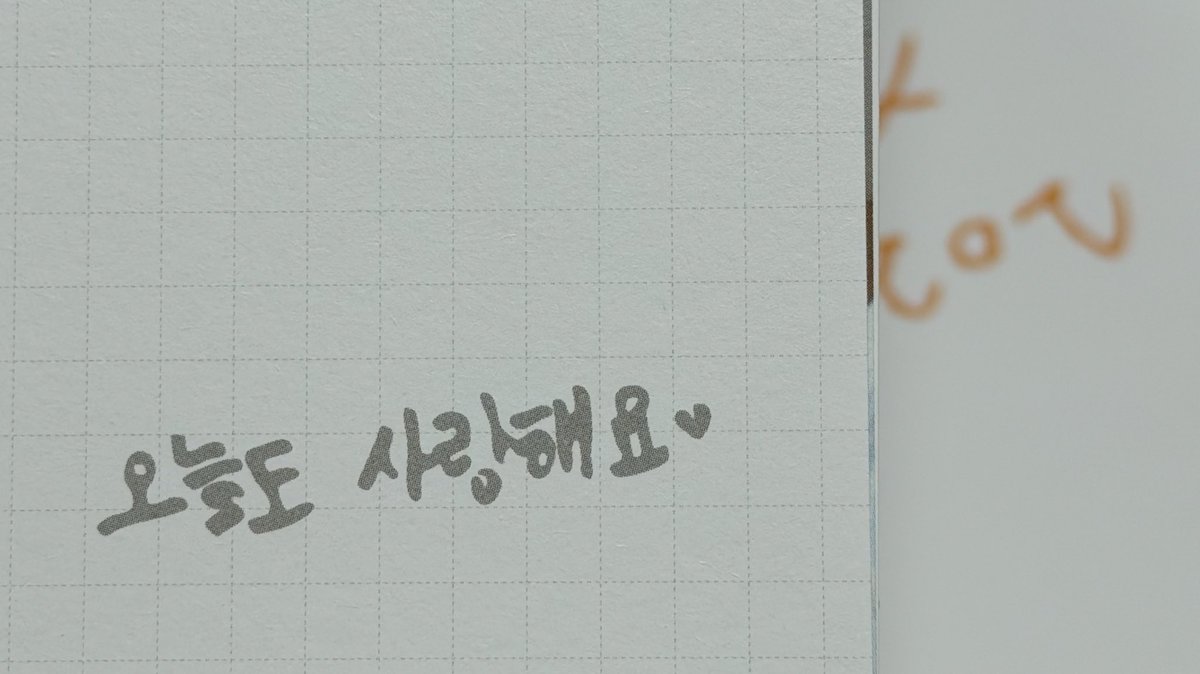 오늘도 사랑해요♥